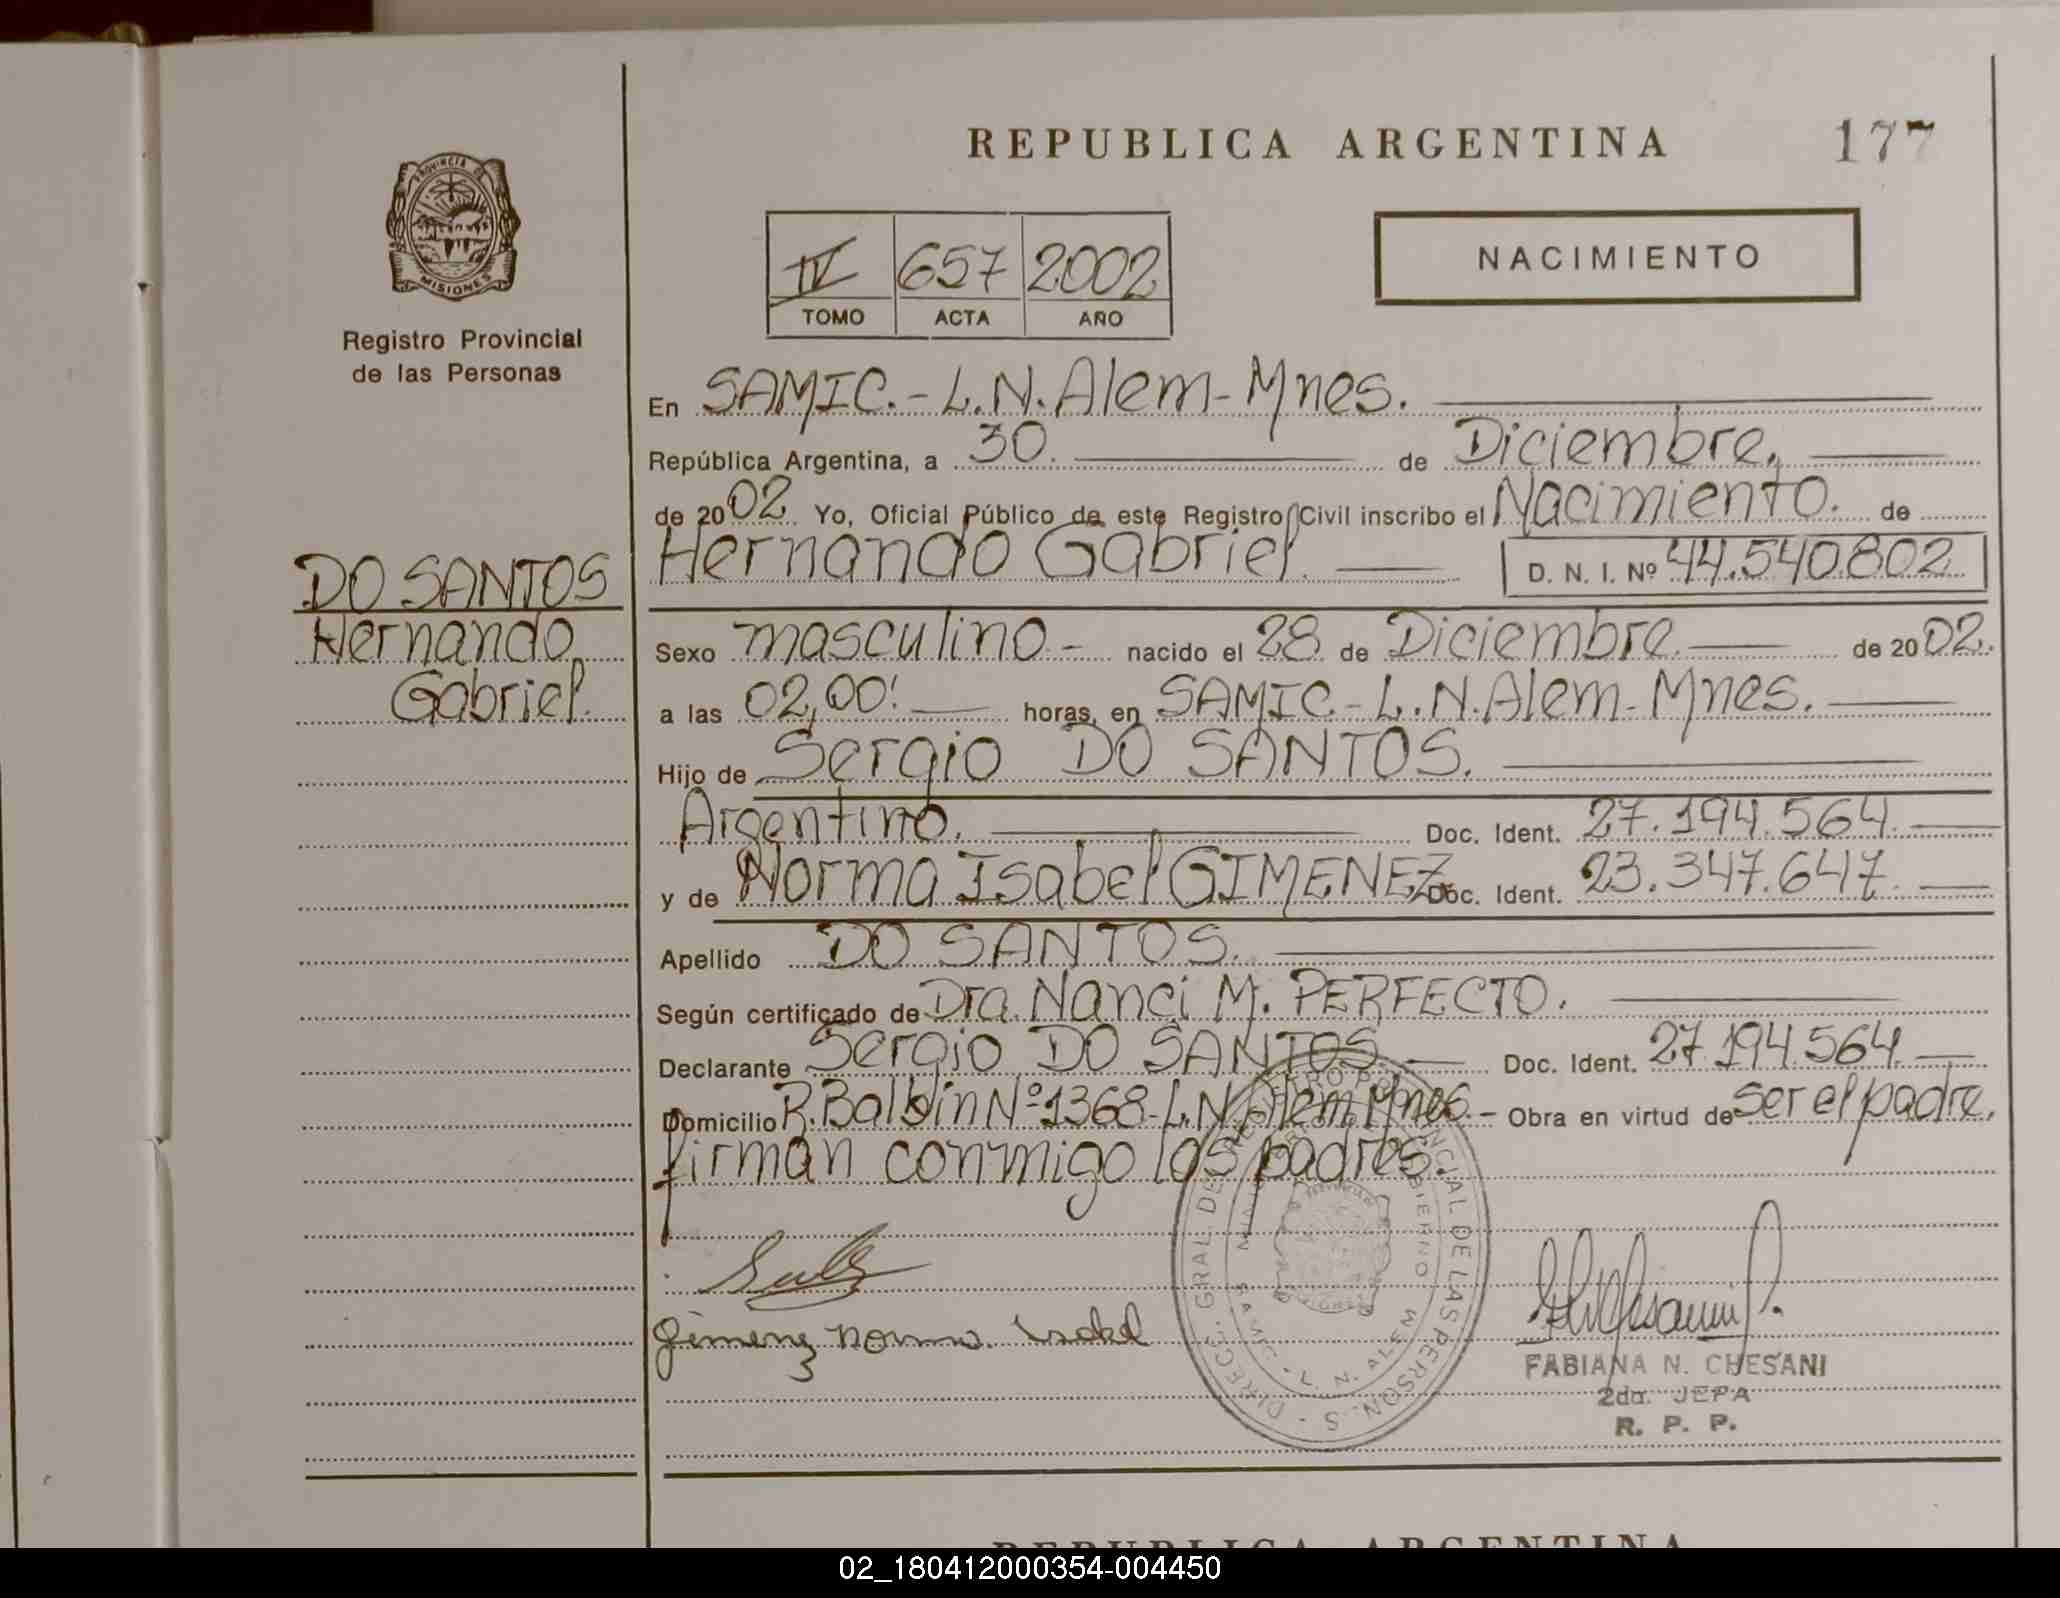 REPUBLICA ARGENTINA 177
PROVINCIA DE
MISIONES
Registro Provincial
de las Personas
IV 657 2002
TOMO ACTA AÑO
NACIMIENTO
En SAMIC.-L.N.Alem-Mnes.
República Argentina, a 30. de Diciembre,
de 2002 Yo, Oficial Público de este Registro Civil inscribo el Nacimiento. de
Hernando Gabriel. D. N. I. Nº 44.540.802
DO SANTOS
Hernando
Gabriel.
Sexo masculino- nacido el 28 de Diciembre de 2002.
a las 02,00! horas, en SAMIC-L.N.Alem-Mnes.
Hijo de Sergio DO SANTOS.
Argentino. Doc. Ident. 27.194.564.
y de Norma Isabel GIMENEZ Doc. Ident. 23.347.647.
Apellido DO SANTOS.
Según certificado de Dra. Nanci M. PERFECTO.
Declarante Sergio DO SANTOS. Doc. Ident. 27.194.564.
Domicilio R.Balbin Nº 1368-L.N.Alem.Mnes.- Obra en virtud de ser el padre,
firman conmigo los padres.
Gimenez Norma. Isabel
DIRECC. GRAL. DEL REGISTRO PROVINCIAL DE LAS PERSONAS
GOBIERNO
SAMIC - L. N. ALEM
FABIANA N. CHESANI
2da. JEFA
R. P. P.
REPUBLICA ARGENTINA
02_180412000354-004450